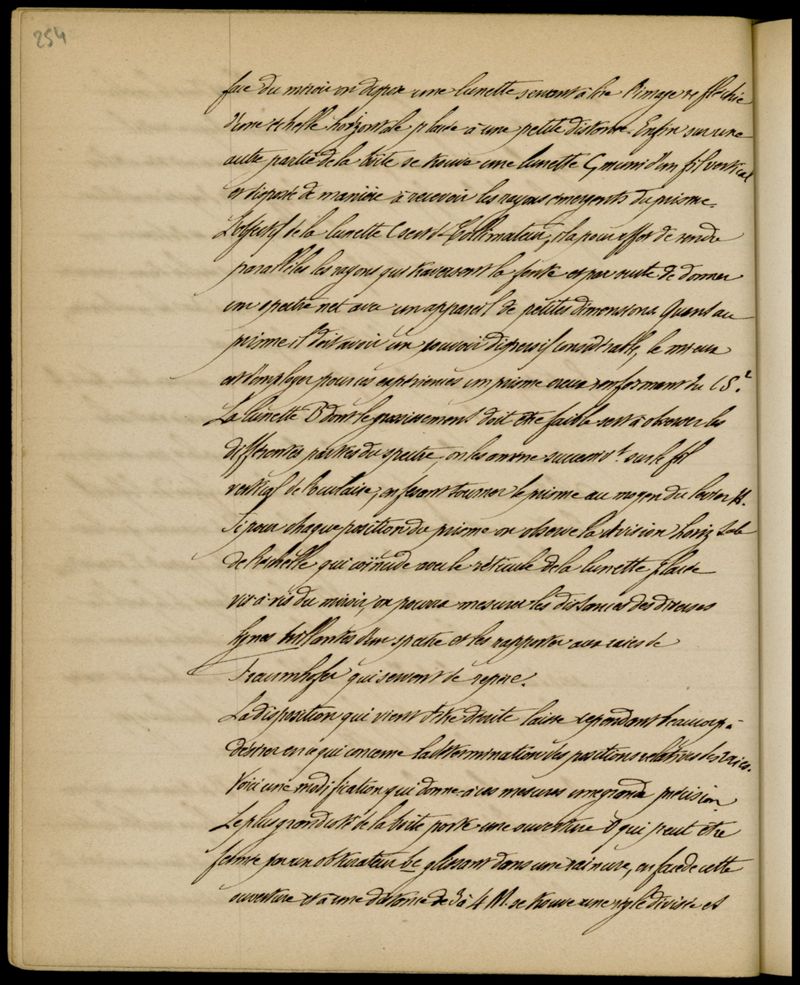 254
face du miroir on dispose une lunette servant à lire l'image réfléchie
d'une échelle horizontale placée à une petite distance. Enfin sur une
autre partie de la boîte se trouve une lunette C, muni d'un fil vertical
et disposé de manière à recevoir les rayons émergents du prisme.
L'objectif de la lunette C sert de Collimateur, il a pour effet de rendre
parallèles les rayons qui traversent la fente et par suite de donner
un spectre net avec un appareil de petites dimensions. Quant au
prisme il doit avoir un pouvoir dispersif considérable, le mieux
est d'employer pour ces expériences un prisme creux renfermant du CS².
La lunette B dont le grossissement doit être faible sert à observer les
différentes parties du spectre, on les amène successivt. sur le fil
vertical de l'oculaire, en faisant tourner le prisme au moyen du levier H.
Si pour chaque position du prisme on observe la division horizontale
de l'échelle qui coïncide avec le réticule de la lunette placée
vis-à-vis du miroir, on pourra mesurer les distances des diverses
lignes brillantes d'un spectre et les rapporter aux raies de
Fraunhofer qui servent de repère.
La disposition qui vient d'être décrite laisse cependant beaucoup à
désirer en ce qui concerne la détermination des positions relatives des raies.
Voici une modification qui donne à ces mesures une grande précision.
Le plus grand côté de la boîte porte une ouverture O qui peut être
fermée par un obturateur bc glissant dans une rainure, en face de cette
ouverture et à une distance de 3 à 4 M. se trouve une règle divisée et